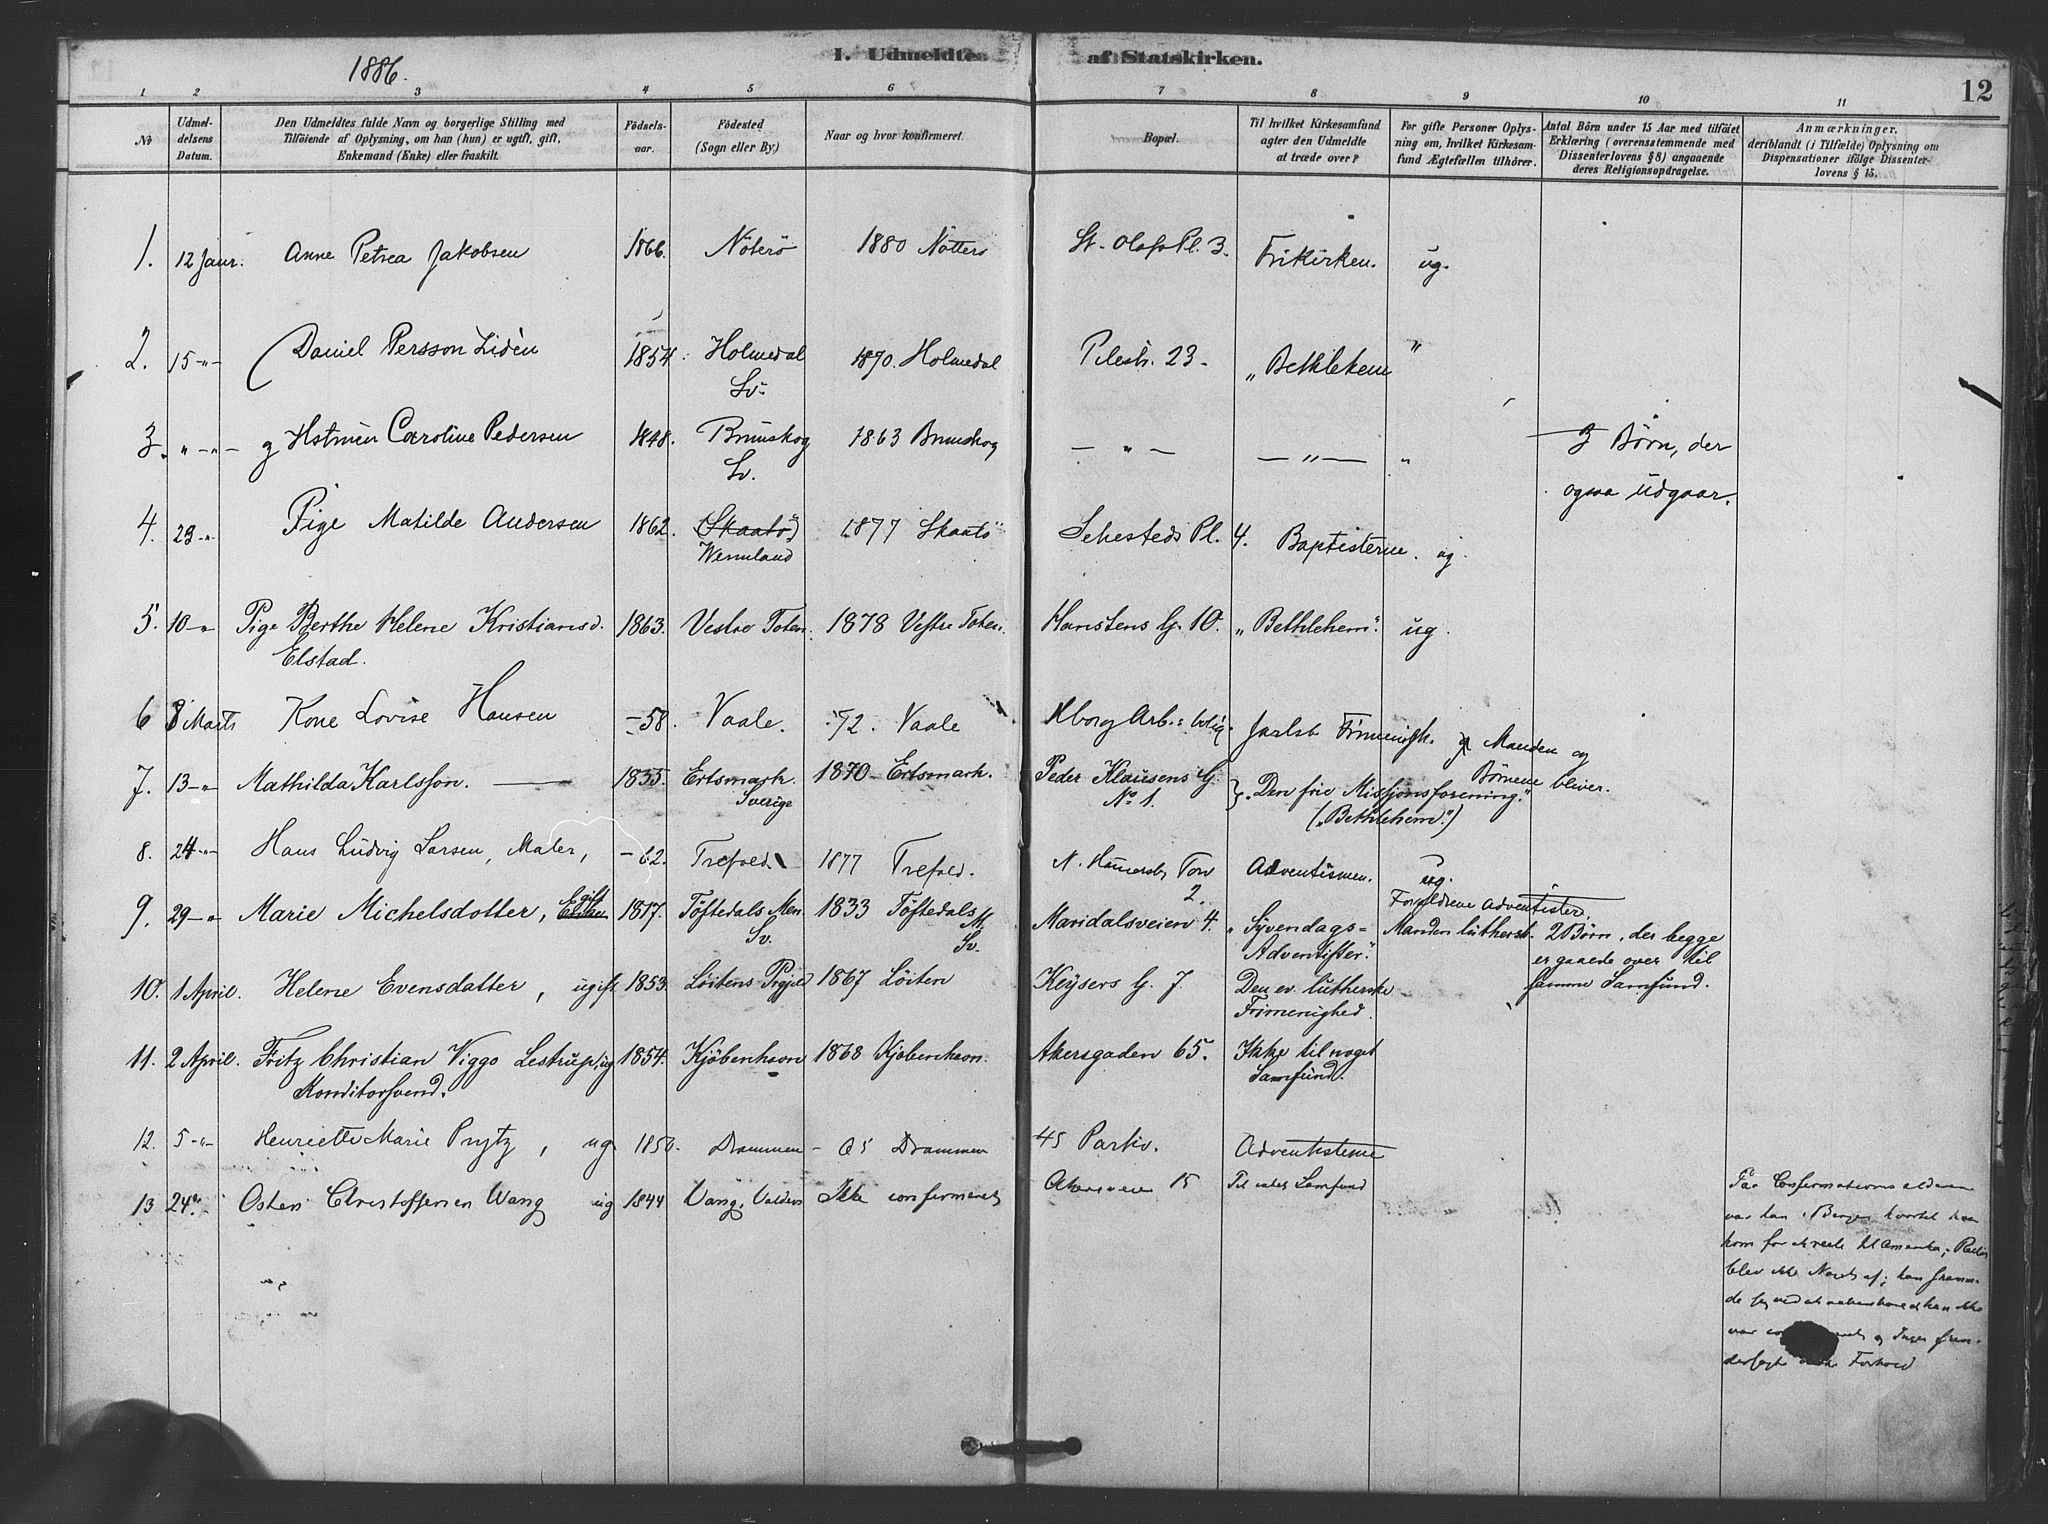 1886.
1. Udmeldte af Statskirken.
12
1 2 3 4 5 6 7 8 9 10 11
No
Udmeldelsens Datum.
Den Udmeldtes fulde Navn og borgerlige Stilling med Tilföiende af Oplysning, om han (hun) er ugift, gift, Enkemand (Enke) eller fraskilt.
Födselsaar.
Födested (Sogn eller By.)
Naar og hvor konfirmeret.
Bopæl.
Til hvilket Kirkesamfund agter den Udmeldte at træde over?
For gifte Personer Oplysning om, hvilket Kirkesamfund Ægtefællen tilhörer.
Antal Börn under 15 Aar med tilföiet Erklæring (overensstemmende med Dissenterlovens § 8) angaaende deres Religionsopdragelse.
Anmærkninger, deriblandt (i Tilfælde) Oplysning om Dispensationer ifölge Dissenterlovens § 15.
1. 12 Janr. Anne Petrea Jakobsen 1866. Nöterö 1880 Nötterö St. Olafs Pl. 3. Frikirken. ug.
2. 15 -"- Daniel Persson Lidèn 1854. Holmedal Sv. 1870. Holmedal Pilestr. 23. "Bethlehem "
3. " -"- g Hstruen Caroline Pedersen 1848. Brunskog Sv. 1863 Brunskog - " - - " - " 3 Børn, der
ogsaa udgaar.
4. 23 -"- Pige Matilde Andersen 1862. (Skaatö) Wermland 1877 Skaatö Sehesteds Pl. 4. Baptisterne. ug.
5. 10 -"- Pige Berthe Helene Kristiansd. Elstad. 1863. Vestre Toten. 1878 Vestre Toten. Hanstens G. 10. "Bethlehem". ug.
6 8 Marts Kone Lovise Hansen -58. Vaale. -72. Vaale Arb.: bolig. Jarlsb Frimenigh. g Manden og
Børnene bliver.
7. 13 -"- Mathilda Karlsson. 1855. Ertsmark. Sverige 1870 Ertsmark. Peder Klausens G. No 1. "Den frie Missjonsforening." ("Bethlehem".)
8. 24 -"- Hans Ludvig Larsen, Maler, -62. Trefold 1877 Trefold. N. Hammersb. Torv 2. Adventismen. ug.
Forældrene Adventister.
9. 29 -"- Marie Michelsdotter, Egift 1817. Töftedals Men. Sv. 1833 Töftedals M. Sv. Maridalsveien 4. "Syvendags-Adventister". Manden luthersk. 2 Børn, der begge
er gaaede over til
samme Samfund.
10. 1 April. Helene Evensdatter, ugift 1853. Löitens Prgjeld 1867 Löiten Keysers G. 7 Den ev. lutherske Frimenighed.
11. 2 April. Fritz Christian Viggo Lestrup, ug Konditorsvend. 1854. Kjöbenhavn 1868 Kjöbenhavn. Akersgaden 65. Ikke til noget Samfund.
12. 5 -"- Henriette Marie Prytz, ug 1850. Drammen - 65 Drammen 45 Parkv. Adventisterne
13 24 -"- Osten Christoffersen Wang ug 1844 Vang, Valders Ikke confirmeret Akersveien 15 Til intet Samfund
Paa Confirmationsalderen
var han i Bergen hvortil han
kom for at reise til Amerika, Reisen
blev ikke Noget af; han
var
Forhold